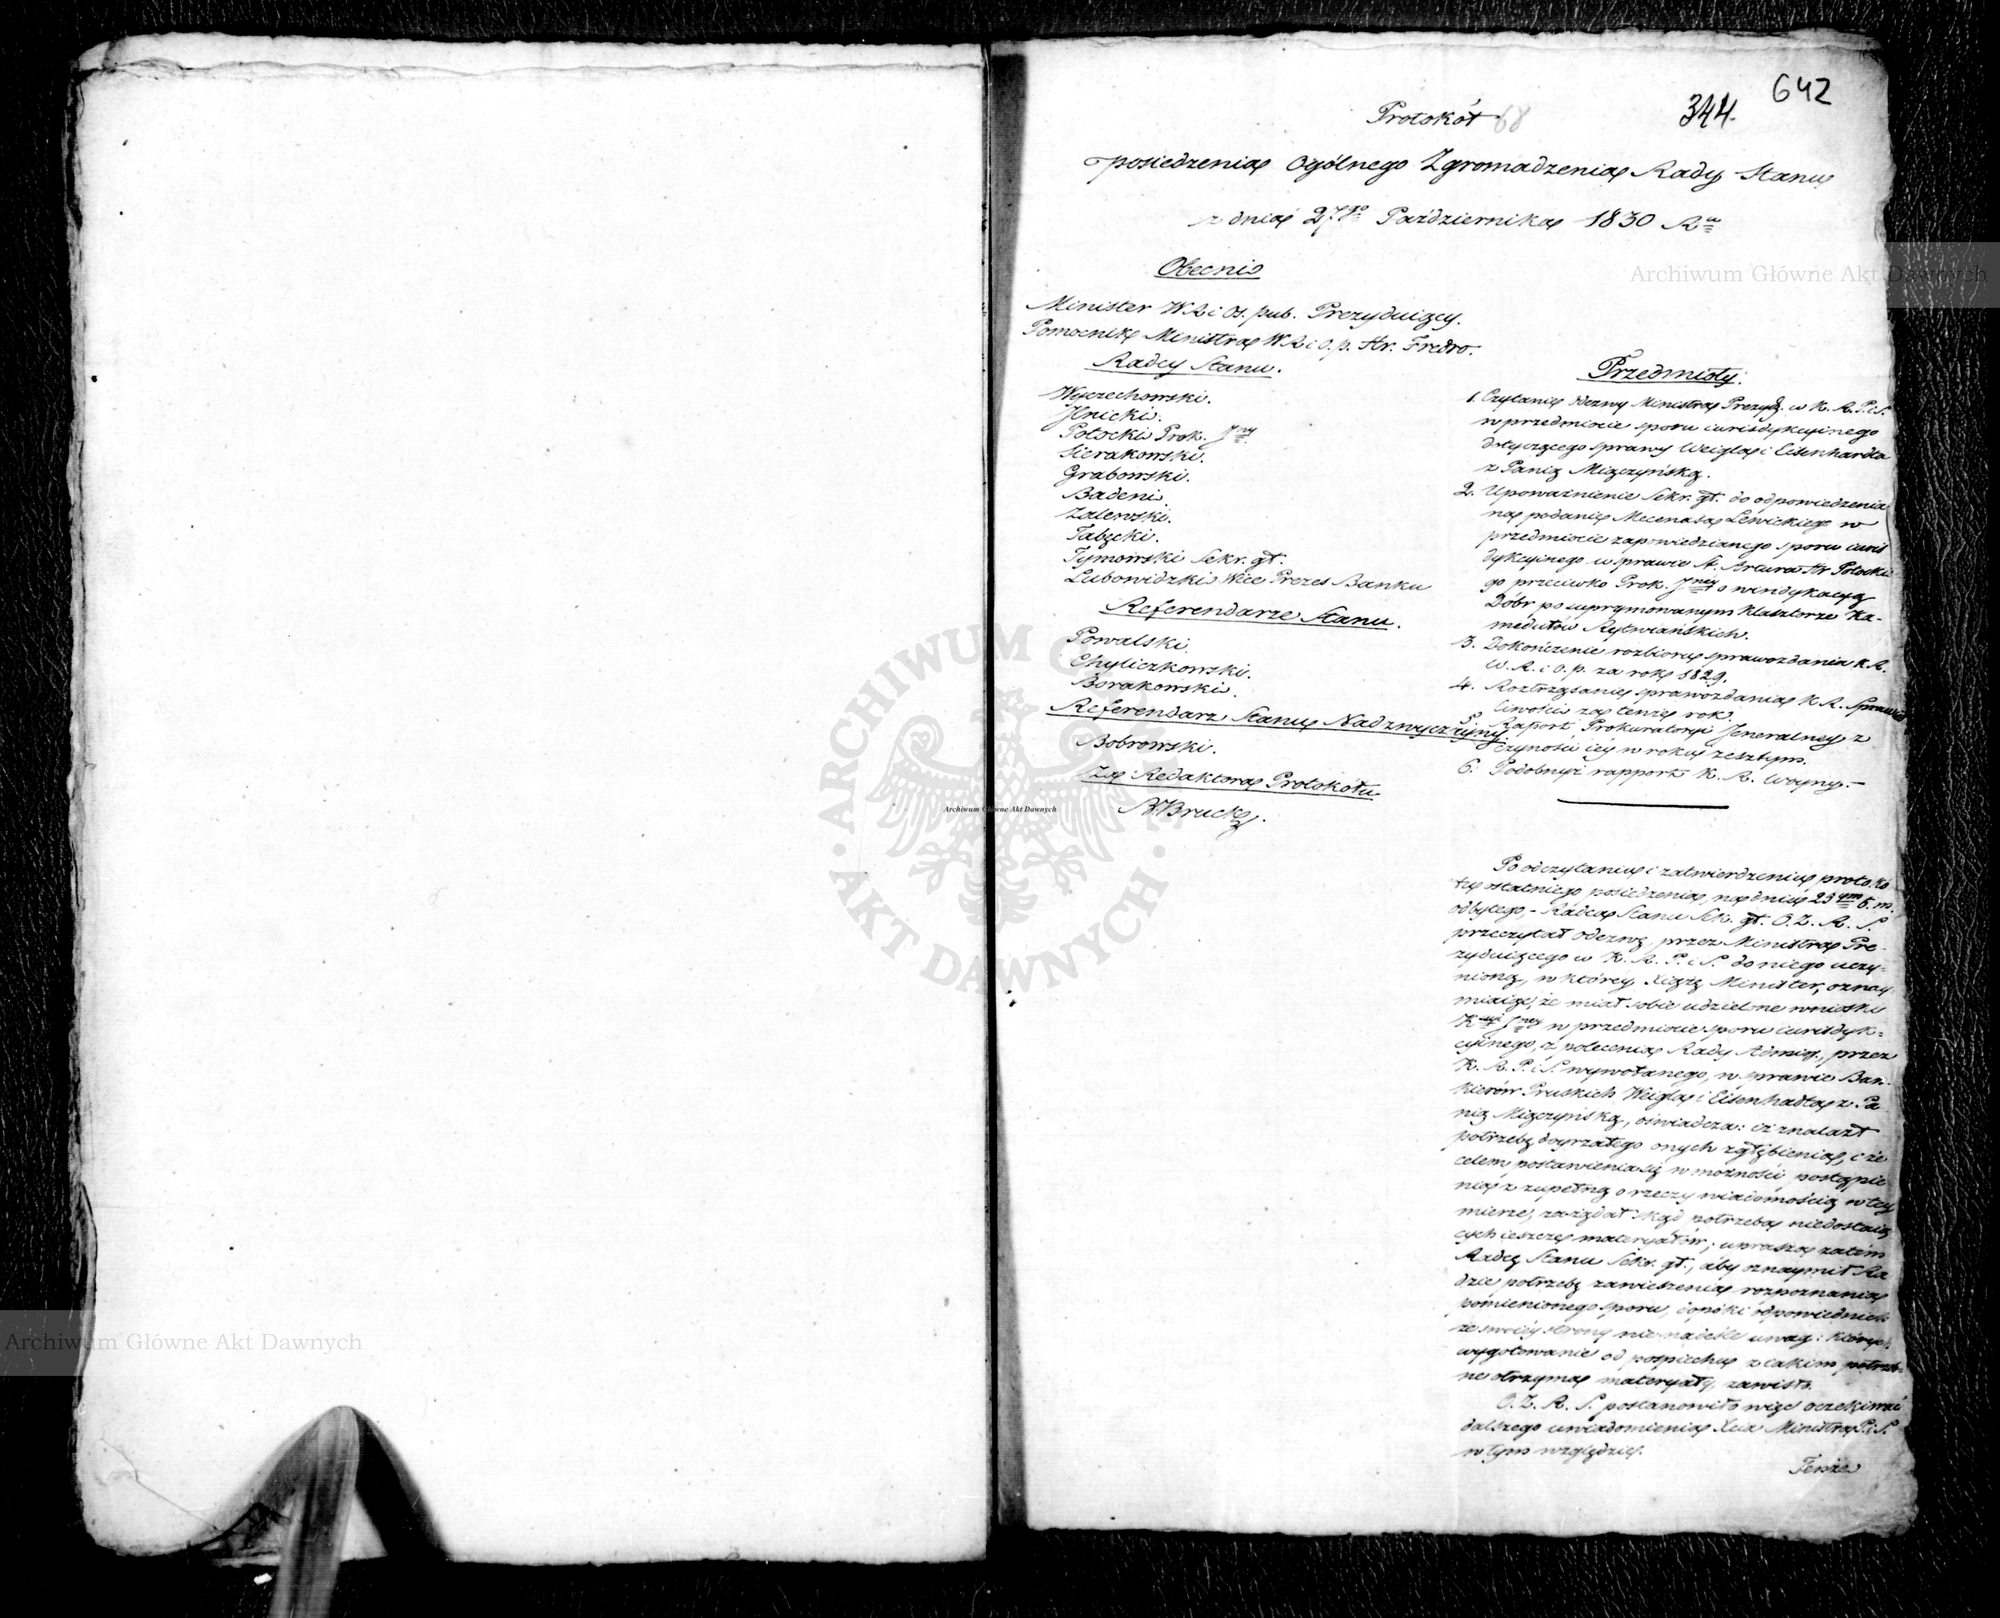 642
344.
Protokół 68
posiedzenia Ogólnego Zgromadzenia Rady Stanu
z dnia 27go Października 1830 Ru
Obecni
Minister WR i Oś. pub. Prezyduiący.
Pomocnik Ministra WR i O. p. Hr. Fredro.
Radcy Stanu.
Wyczechowski.
Ilnicki.
Potocki Prok. Jny
Sierakowski.
Grabowski.
Badeni.
Zalewski.
Tabęcki.
Tymowski Sekr. gł.
Lubowidzki Wice Prezes Banku
Referendarze Stanu.
Powalski.
Chyliczkowski.
Borakowski.
Referendarz Stanu Nadzwyczayny.
Bobrowski.
Za Redaktora Protokółu
Bruck
Przedmioty:
1. Czytanie odezwy Ministra Prezyd. w K. R. P. i S.
w przedmiocie sporu iurisdykcyinego
dotyczącego sprawy Weigla i Eisenhardta
z Panią Miączyńską.
2. Upoważnienie Sekr. gł. do odpowiedzenia
na podanie Mecenasa Lewickiego w
przedmiocie zapowiedzianego sporu iuris
dykcyinego w sprawie A. Artura Hr Potockie
go przeciwko Prok. Jney o windykacyą
Dóbr po suprymowanym Klasztorze Ka-
medułów Rytwiańskich.
3. Dokończenie rozbioru sprawozdania K. R.
W. R. i O. p. za rok 1829.
4. Roztrząsanie sprawozdania K. R. Sprawied
liwości za tenże rok.
5. Raport Prokuratoryi Jeneralney z
czynności iey w roku zeszłym.
6. Podobnyż rapport K. R. Woyny.—
Po odczytaniu i zatwierdzeniu protokó
łu ostatniego posiedzenia na dniu 23 b. m.
odbytego,- Radca Stanu Sek. gł. O. Z. R. S.
przeczytał odezwę przez Ministra Pre-
zyduiącego w K. R. P. i S. do niego uczy-
nioną, w którey Xiążę Minister, oznay-
miaiąc, że miał sobie udzielone wnioski
Jney w przedmiocie sporu iurisdyk-
cyinego, z polecenia Rady Admin., przez
K. R. P. i S. wywołanego, w sprawie Ban-
kierów Pruskich Weigla i Eisenhadta z Pa
nią Miączyńską, oświadcza: iż znalazł
potrzebę doyrzałego onych zgłębienia, i że
celem postawienia się w możności postąpie
nia z zupełną o rzeczy wiadomością w tey
mierze, zażądał skąd potrzeba niedostaią
cych ieszcze materyałów; uprasza zatém
Radcę Stanu Sekr. gł., aby oznaymił Ra
dzie potrzebę zawieszenia rozpoznania
pomienionego sporu, dopóki odpowiednich
ze swoiéy strony nie nadeśle uwag: których
wygotowanie od pospiechu z iakim potrzeb-
ne otrzyma materyały, zawisło.
O. Z. R. S. postanowiło więc oczekiwać
dalszego uwiadomienia Xcia Ministra P. i S.
w tym względzie.
Tenże
Archiwum Główne Akt Dawnych
Archiwum Główne Akt Dawnych
Archiwum Główne Akt Dawnych
ARCHIWUM GŁÓWNE AKT DAWNYCH